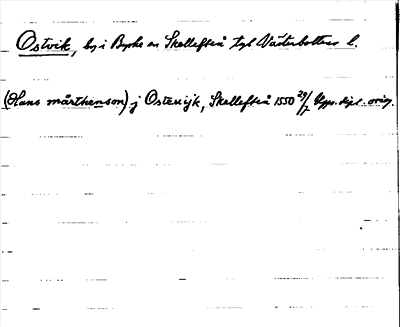 Ostvik, by i Byske sn Skellefteå tgl Västerbottens l.
(Hans mårthenson) j Osterwijk, Skellefteå 1550 29/7 Upps. dipl. orig.